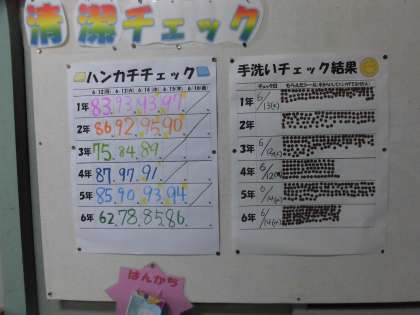 清潔チェック
ハンカチチェック
6/12(月) 6/13(火) 6/14(水) 6/15(木) 6/16(金)
1年 83. 93. 93. 97.
2年 86. 92. 95. 90.
3年 75. 84. 89.
4年 87. 97. 91.
5年 85. 90. 93. 94.
6年 62. 78. 85. 86.
手洗いチェック結果
チェック日
1年 6/13(火)
2年
3年 6/14(水)
4年
5年 6/14(水)
6年 6/14(水)
はんかち